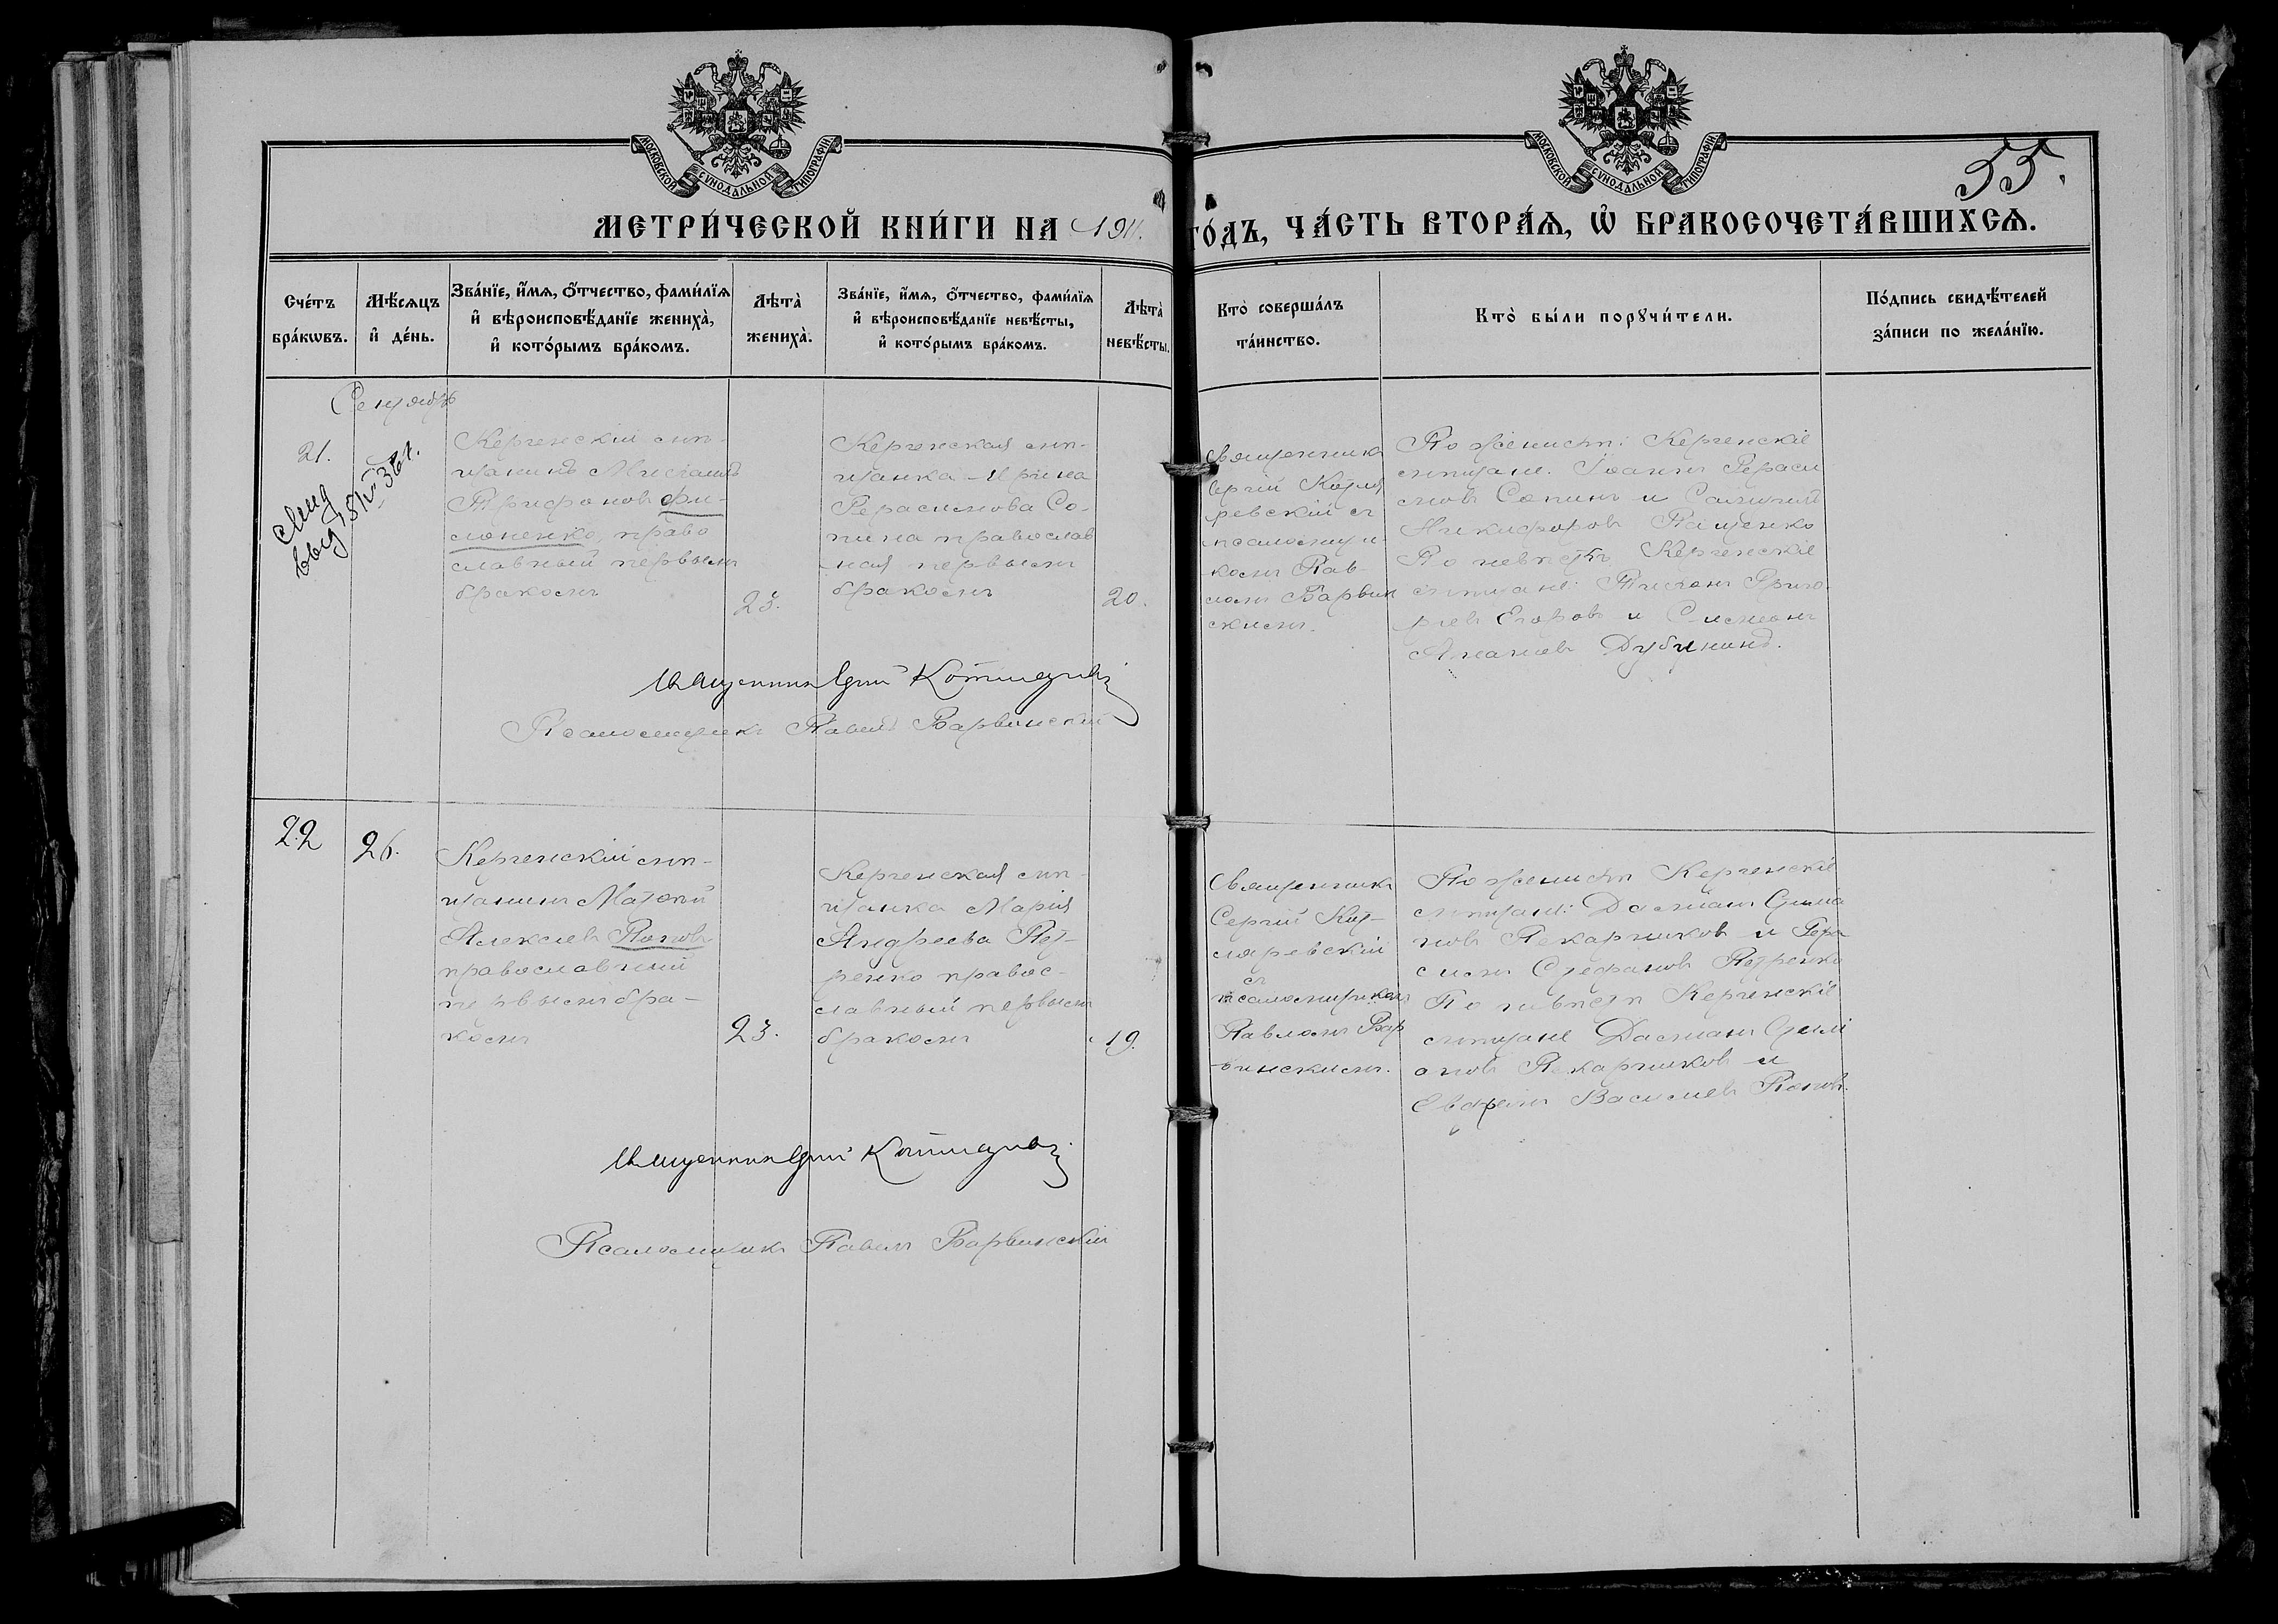 МОСКОВСКОЙ СѴНОДАЛЬНОЙ ТИПОГРАФІИ.
МОСКОВСКОЙ СѴНОДАЛЬНОЙ ТИПОГРАФІИ.
55.
МЕТРИ́ЧЕСКОЙ КНИ́ГИ НА 1911. ГО́ДЪ, ЧА́СТЬ ВТОРА́Ѧ, Ѡ҆ БРАКОСОЧЕТА́ВШИХСѦ.
Сче́тъ бра́кѡвъ.
Мѣ́сяцъ и҆ де́нь.
Зва́нїе, и҆́мѧ, ѻ҆́тчество, фами́лїѧ и҆ вѣроисповѣ́данїе жениха̀, и҆ кото́рымъ бра́комъ.
Лѣта̀ жениха̀.
Зва́нїе, и҆́мѧ, ѻ҆́тчество, фами́лїѧ и҆ вѣроисповѣ́данїе невѣ́сты, и҆ кото́рымъ бра́комъ.
Лѣта̀ невѣ́сты.
Кто̀ соверша́лъ та́инство.
Кто̀ бы́ли порꙋчи́тели.
По́дпись свидѣ́телей за́писи по жела́нїю.
Сентябрь
21.
Керченскій мѣ-
щанинъ Михаилъ
Трифоновъ Фи-
лоненко, право
славный первымъ
бракомъ
23.
Керченская мѣ-
щанка Ирина
Герасимова Со-
пина православ
ная первымъ
бракомъ
20.
Священникъ
Сергій Котля
ревскій съ
псаломщи-
комъ Пав-
ломъ Варвин
скимъ.
По женихѣ: Керченскіе
мѣщане: Іоаннъ Гераси
мовъ Сопинъ и
Никифоровъ Пащенко
По невѣстѣ Керченскіе
мѣщане: Тихонъ Григо
рьевъ Егоровъ и Симеонъ
Дубининъ.
Священникъ Сергій Котляревскій
Псаломщикъ Павелъ Варвинскій
22
26.
Керченскій мѣ-
щанинъ Матѳей
Алексіевъ Поповъ
православный
первымъ бра-
комъ
23.
Керченская мѣ-
щанка Марія
Андреева Пет-
ренко правос-
лавный первымъ
бракомъ
19.
Священникъ
Сергій Кот-
ляревскій
съ
псаломщикомъ
Павломъ Вар
винскимъ.
По женихѣ Керченскіе
мѣщане: Даміанъ
новъ Пекарниковъ и Гера
симъ Стефановъ Петренко
По невѣстѣ Керченскіе
мѣщане Даміанъ
оновъ Пекарниковъ и
Евфимъ Васильевъ Поповъ.
Священникъ Сергій Котляревскій
Псаломщикъ Павелъ Варвинскій